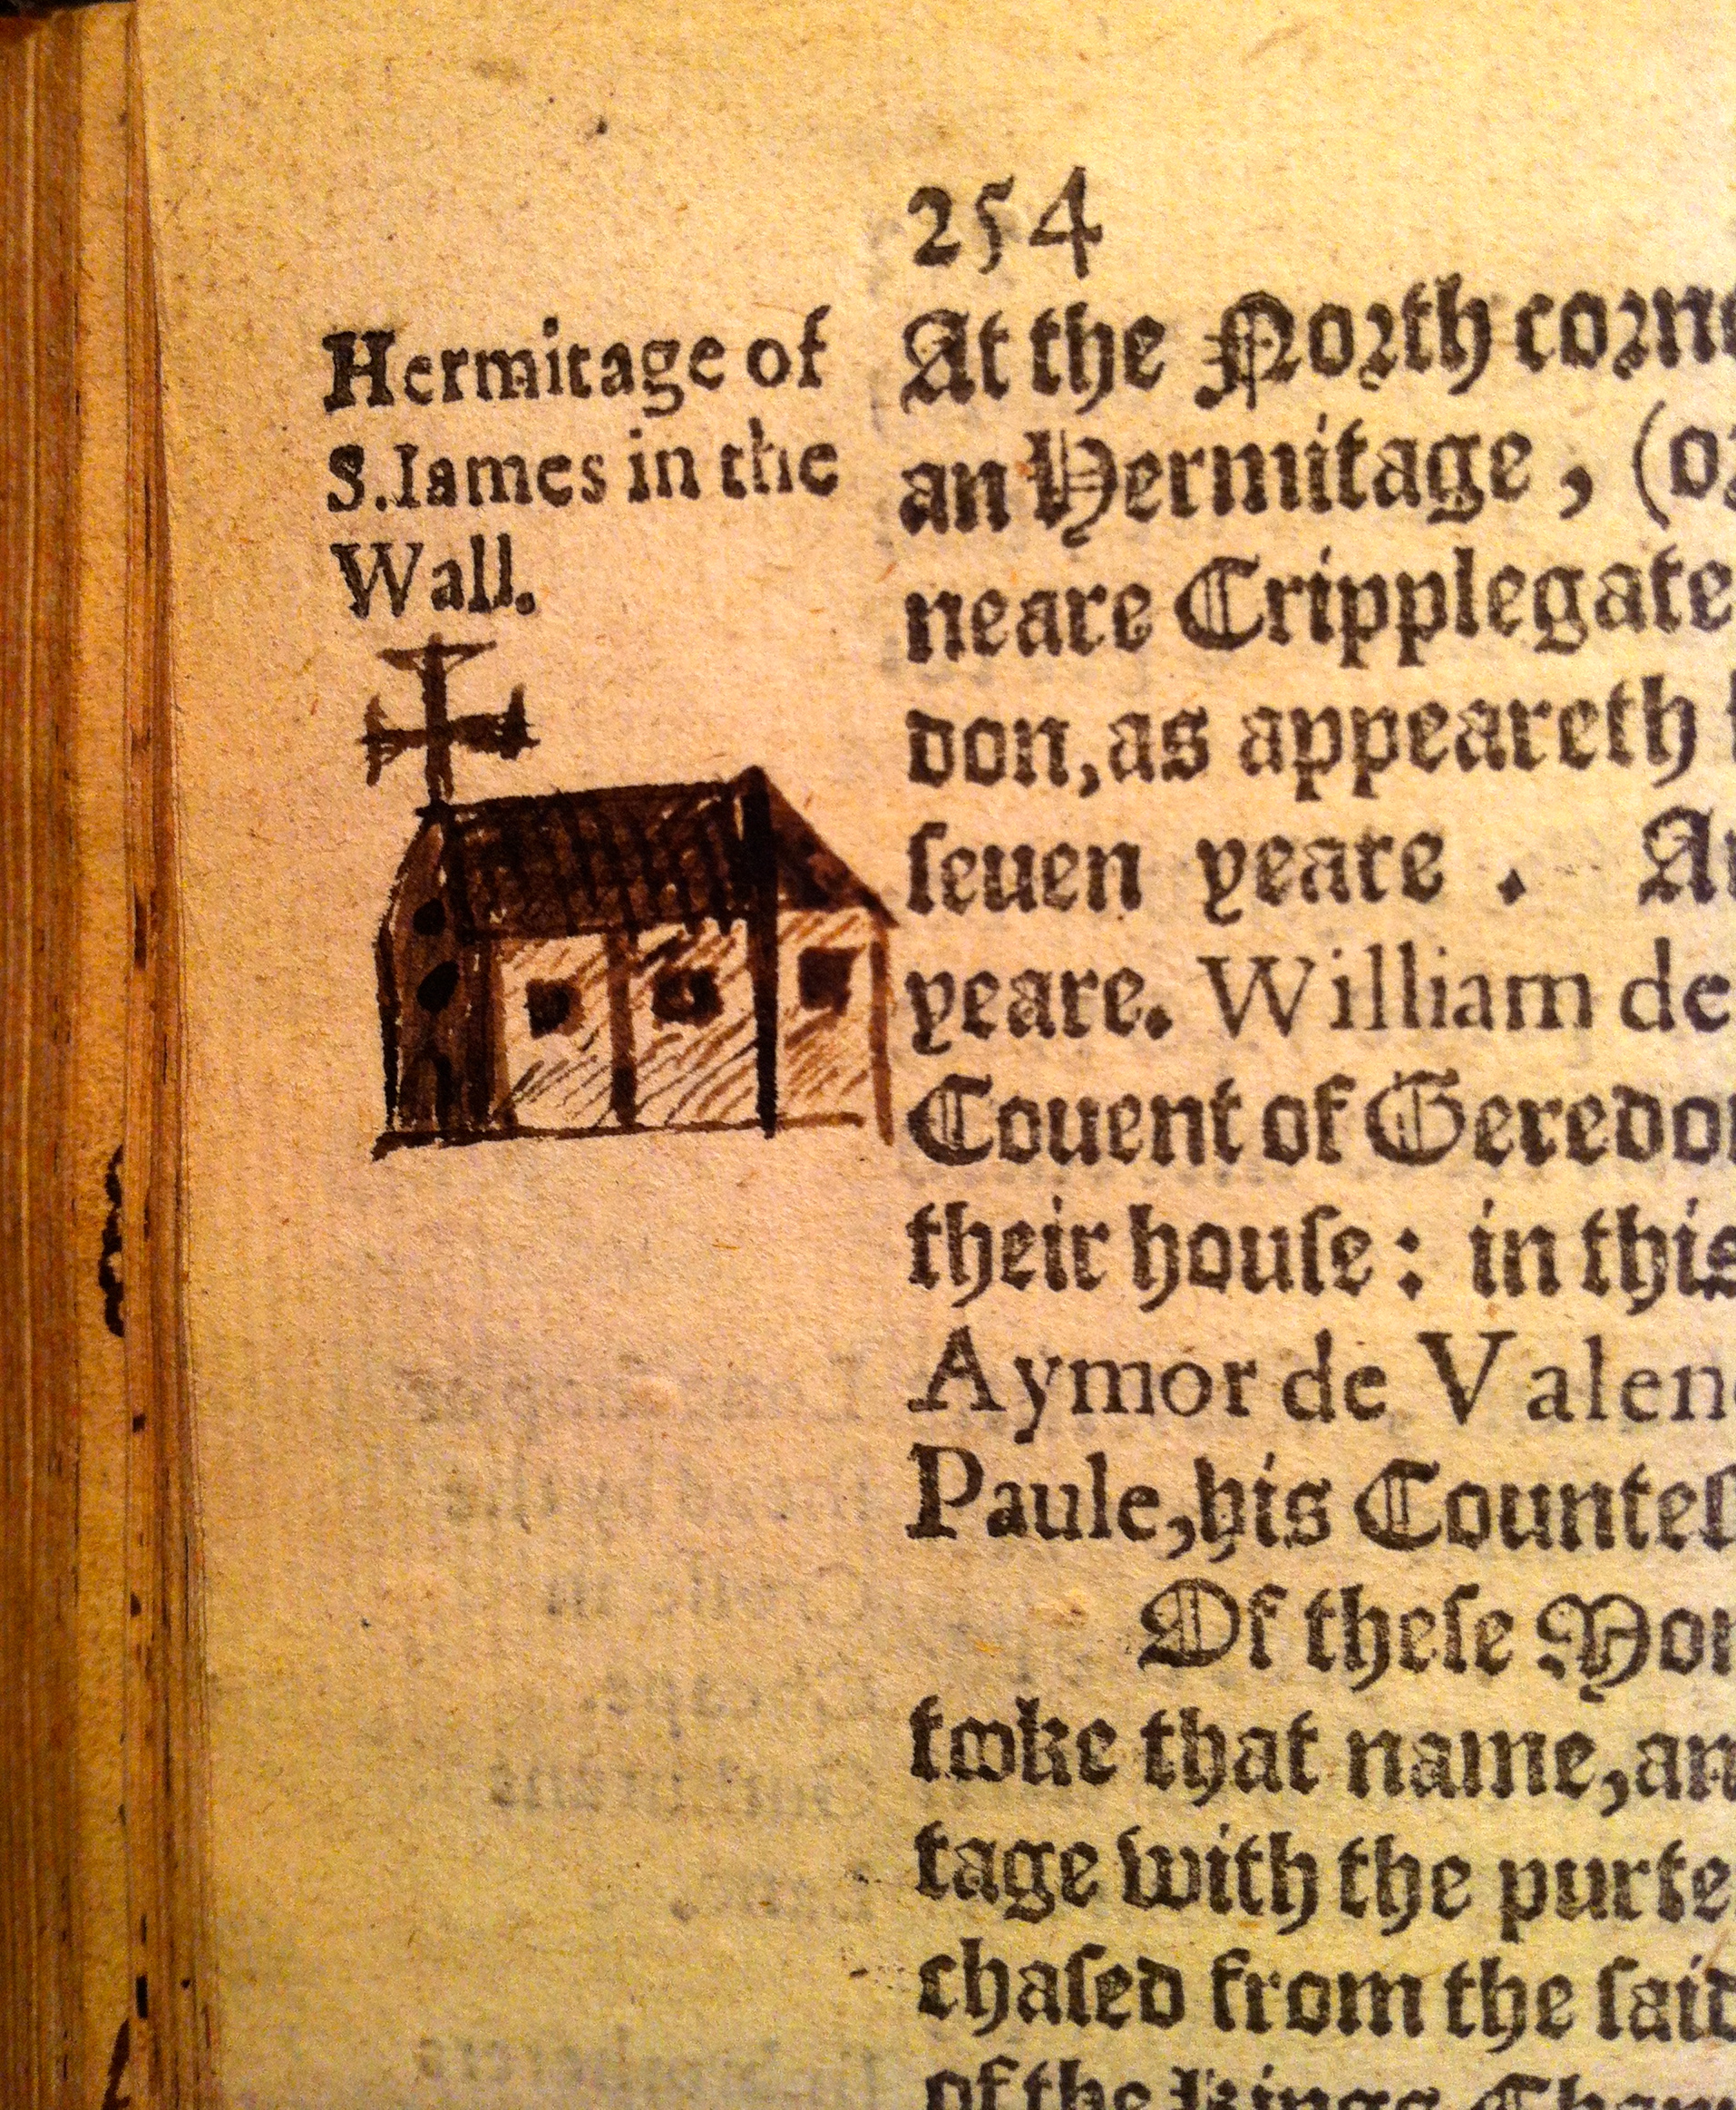 254
Hermitage of
S.Iames in the
Wall.
At the North corn
an Hermitage, (o
neare Cripplegate
don, as appeareth
ſeuen yeare. A
yeare. William de
Couent of Geredo
their houſe: in this
Aymor de Valen
Paule, his Counteſ
Of theſe Mon
tooke that name, an
tage with the purte
chaſed from the ſaid
of the Kings Cham